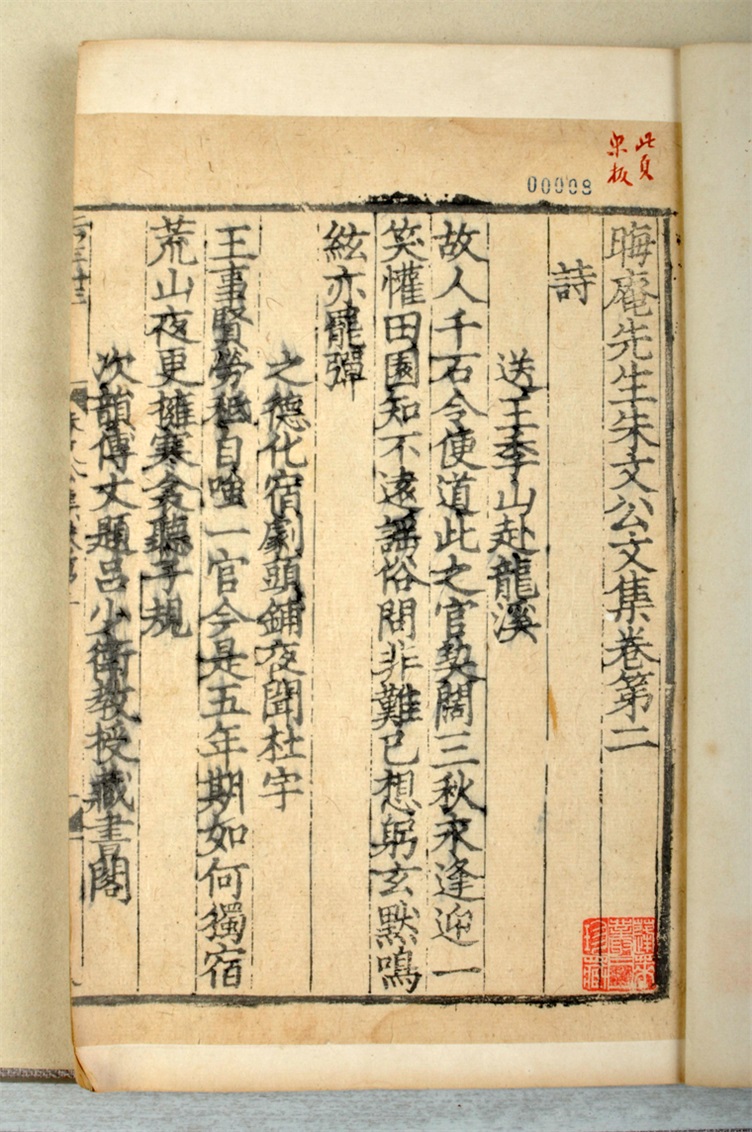 此頁
宋板
00008
晦庵先生朱文公文集卷第二
詩
送王季山赴龍溪
故人千石令便道此之官契闊三秋永逢迎一
笑懽田園知不遠謡俗問非難已想躬玄默鳴
絃亦罷彈
之德化宿劇頭鋪夜聞杜宇
王事賢勞秪自嗤一官今是五年期如何獨宿
荒山夜更擁寒衾聽子規
次韻傅丈題呂少衛教授藏書閣